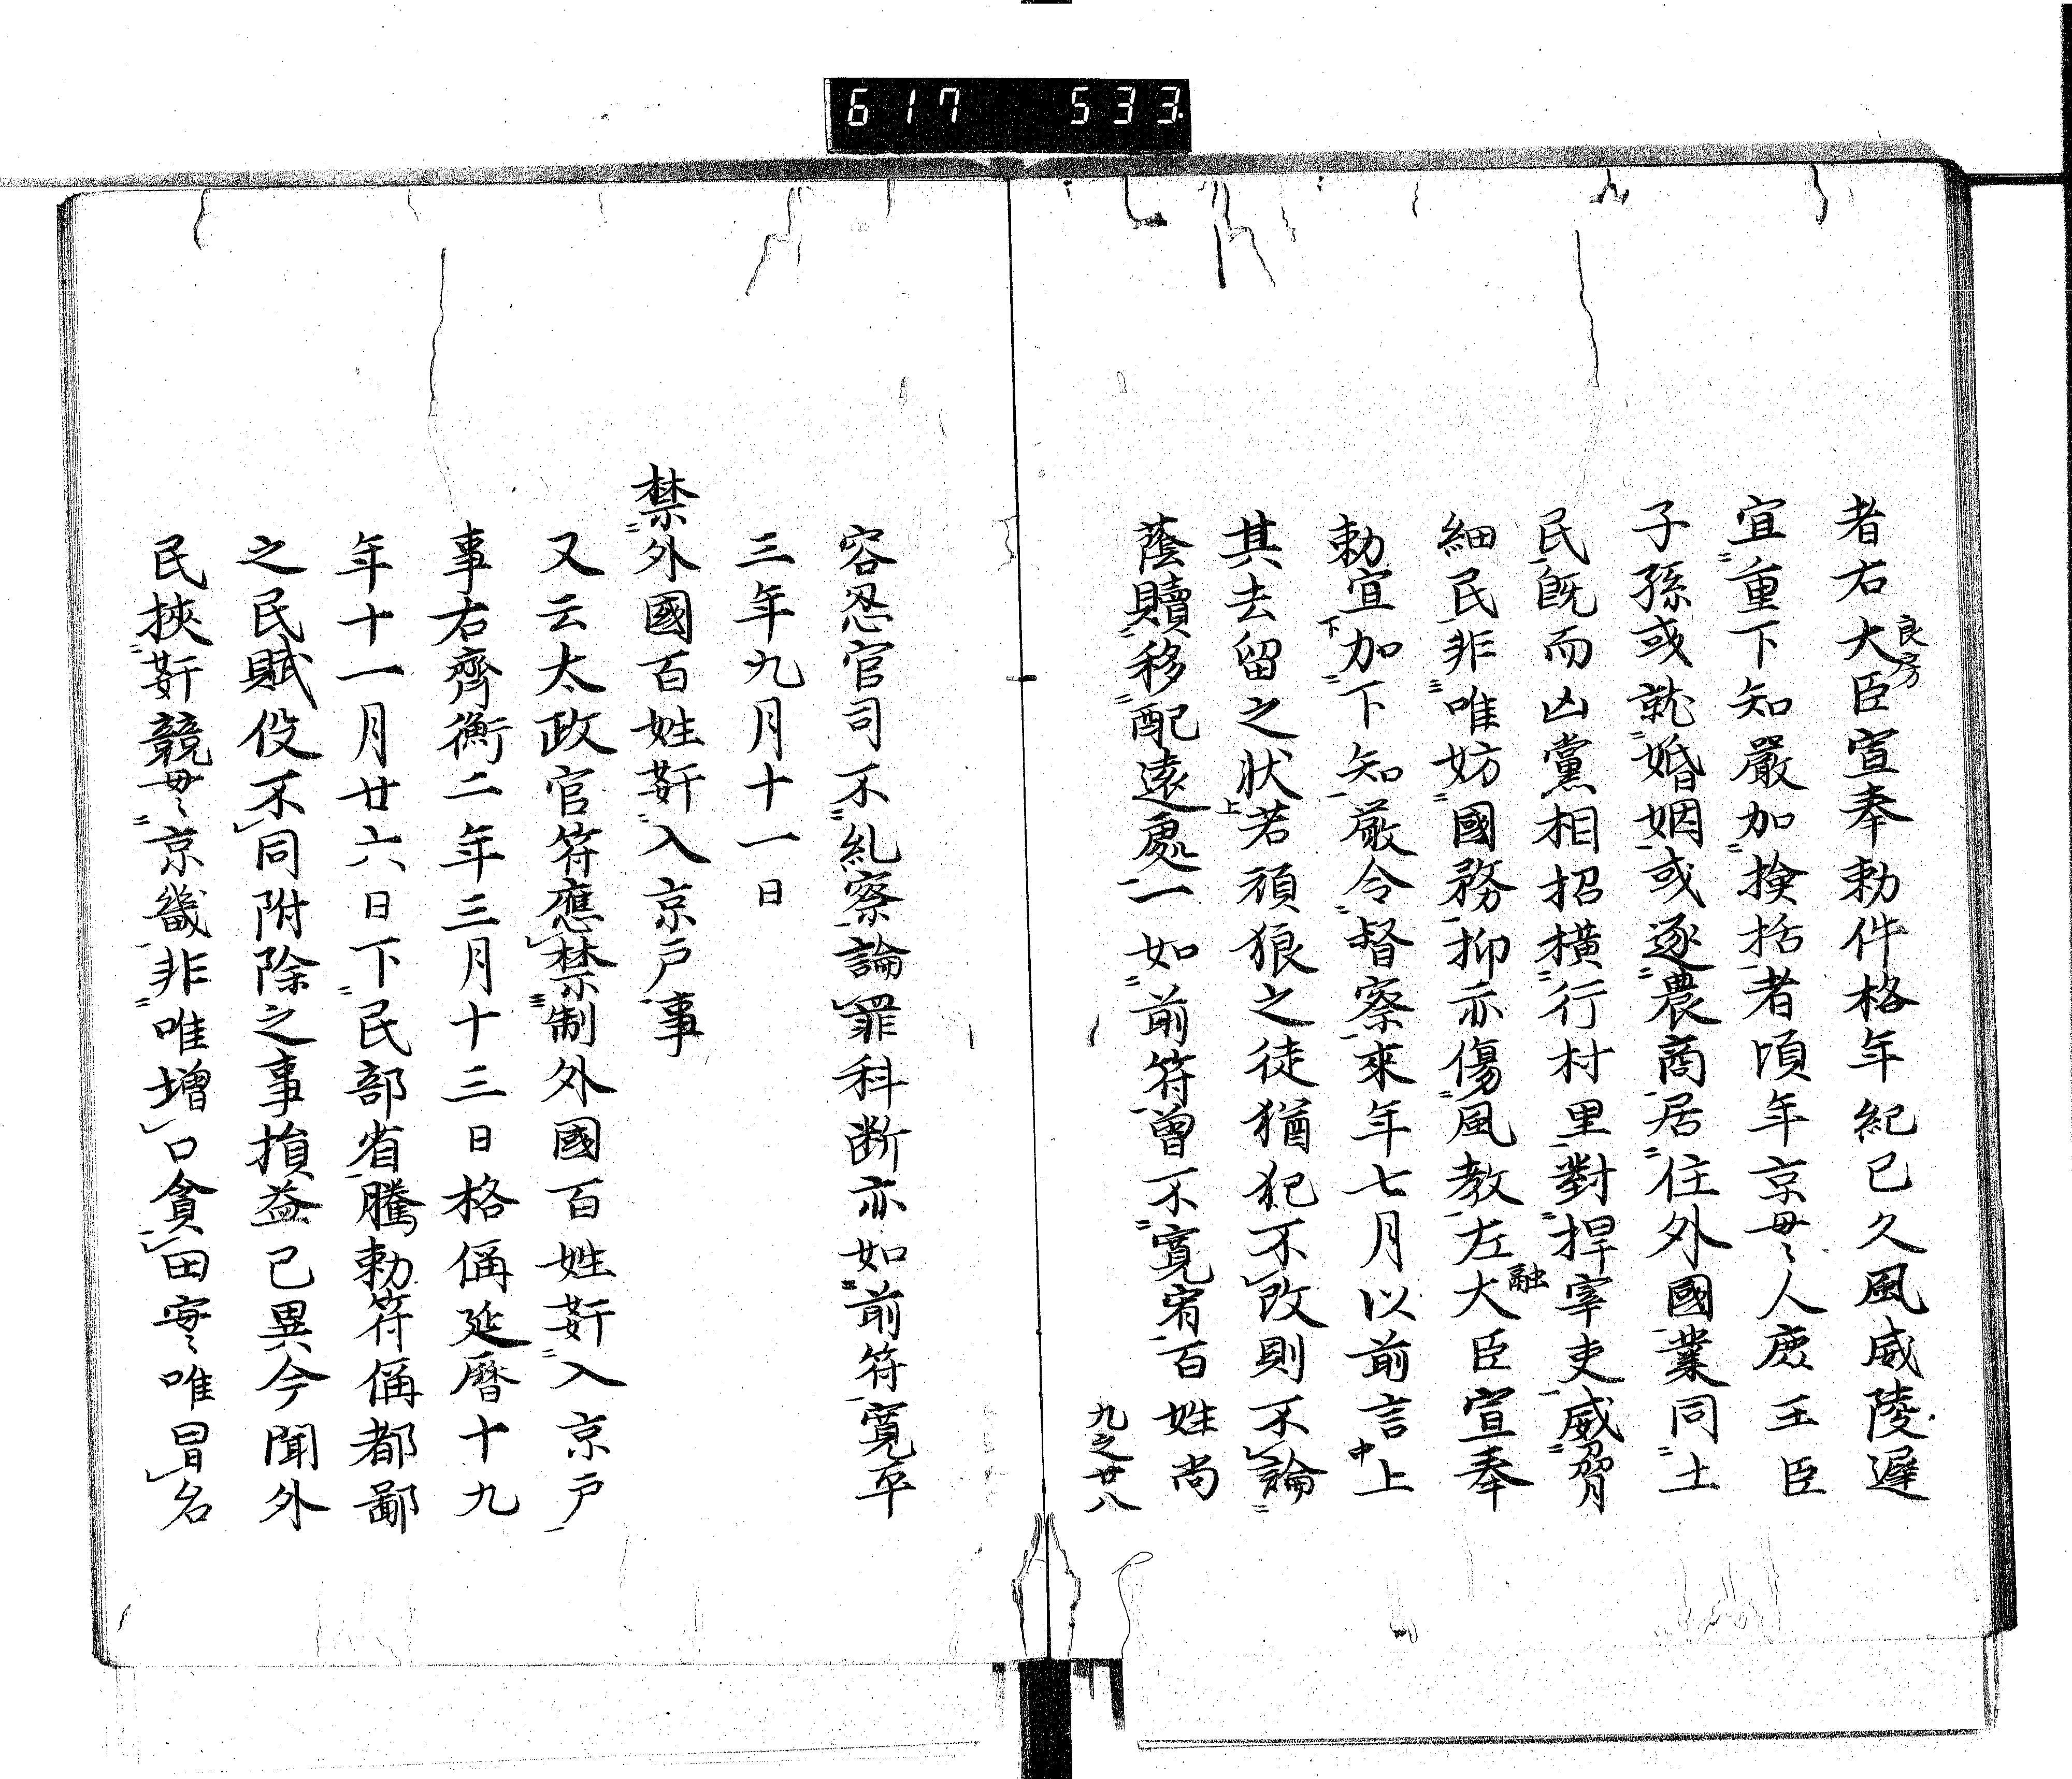 617 533
者右大臣宣奉勅件格年紀已久風威陵遅
良房
宜重下知嚴加捡括者頃年京貫人庶王臣
子孫或就婚姻或逐農商居住外國業同土
民既而凶黨相招横行村里對捍宰吏威脅
細民非唯妨國務抑亦傷風教左大臣宣奉
融
勅宜加下知嚴令督察來年七月以前言上
下
中
其去留之状若頑狼之徒猶犯不改則不論
上
蔭贖移配遠處一如前符曾不寛宥百姓尚
九之廿八
容忍官司不糺察論罪科断亦如前符寛平
三年九月十一日
禁外國百姓姧入京戸事
又云太政官符應禁制外國百姓姧入京戸
事右齊衡二年三月十三日格偁延暦十九
年十一月廿六日下民部省騰勅符偁都鄙
之民賦役不同附除之事損益已異今聞外
民挾姧競貫京畿非唯増口貪田寔唯冒名